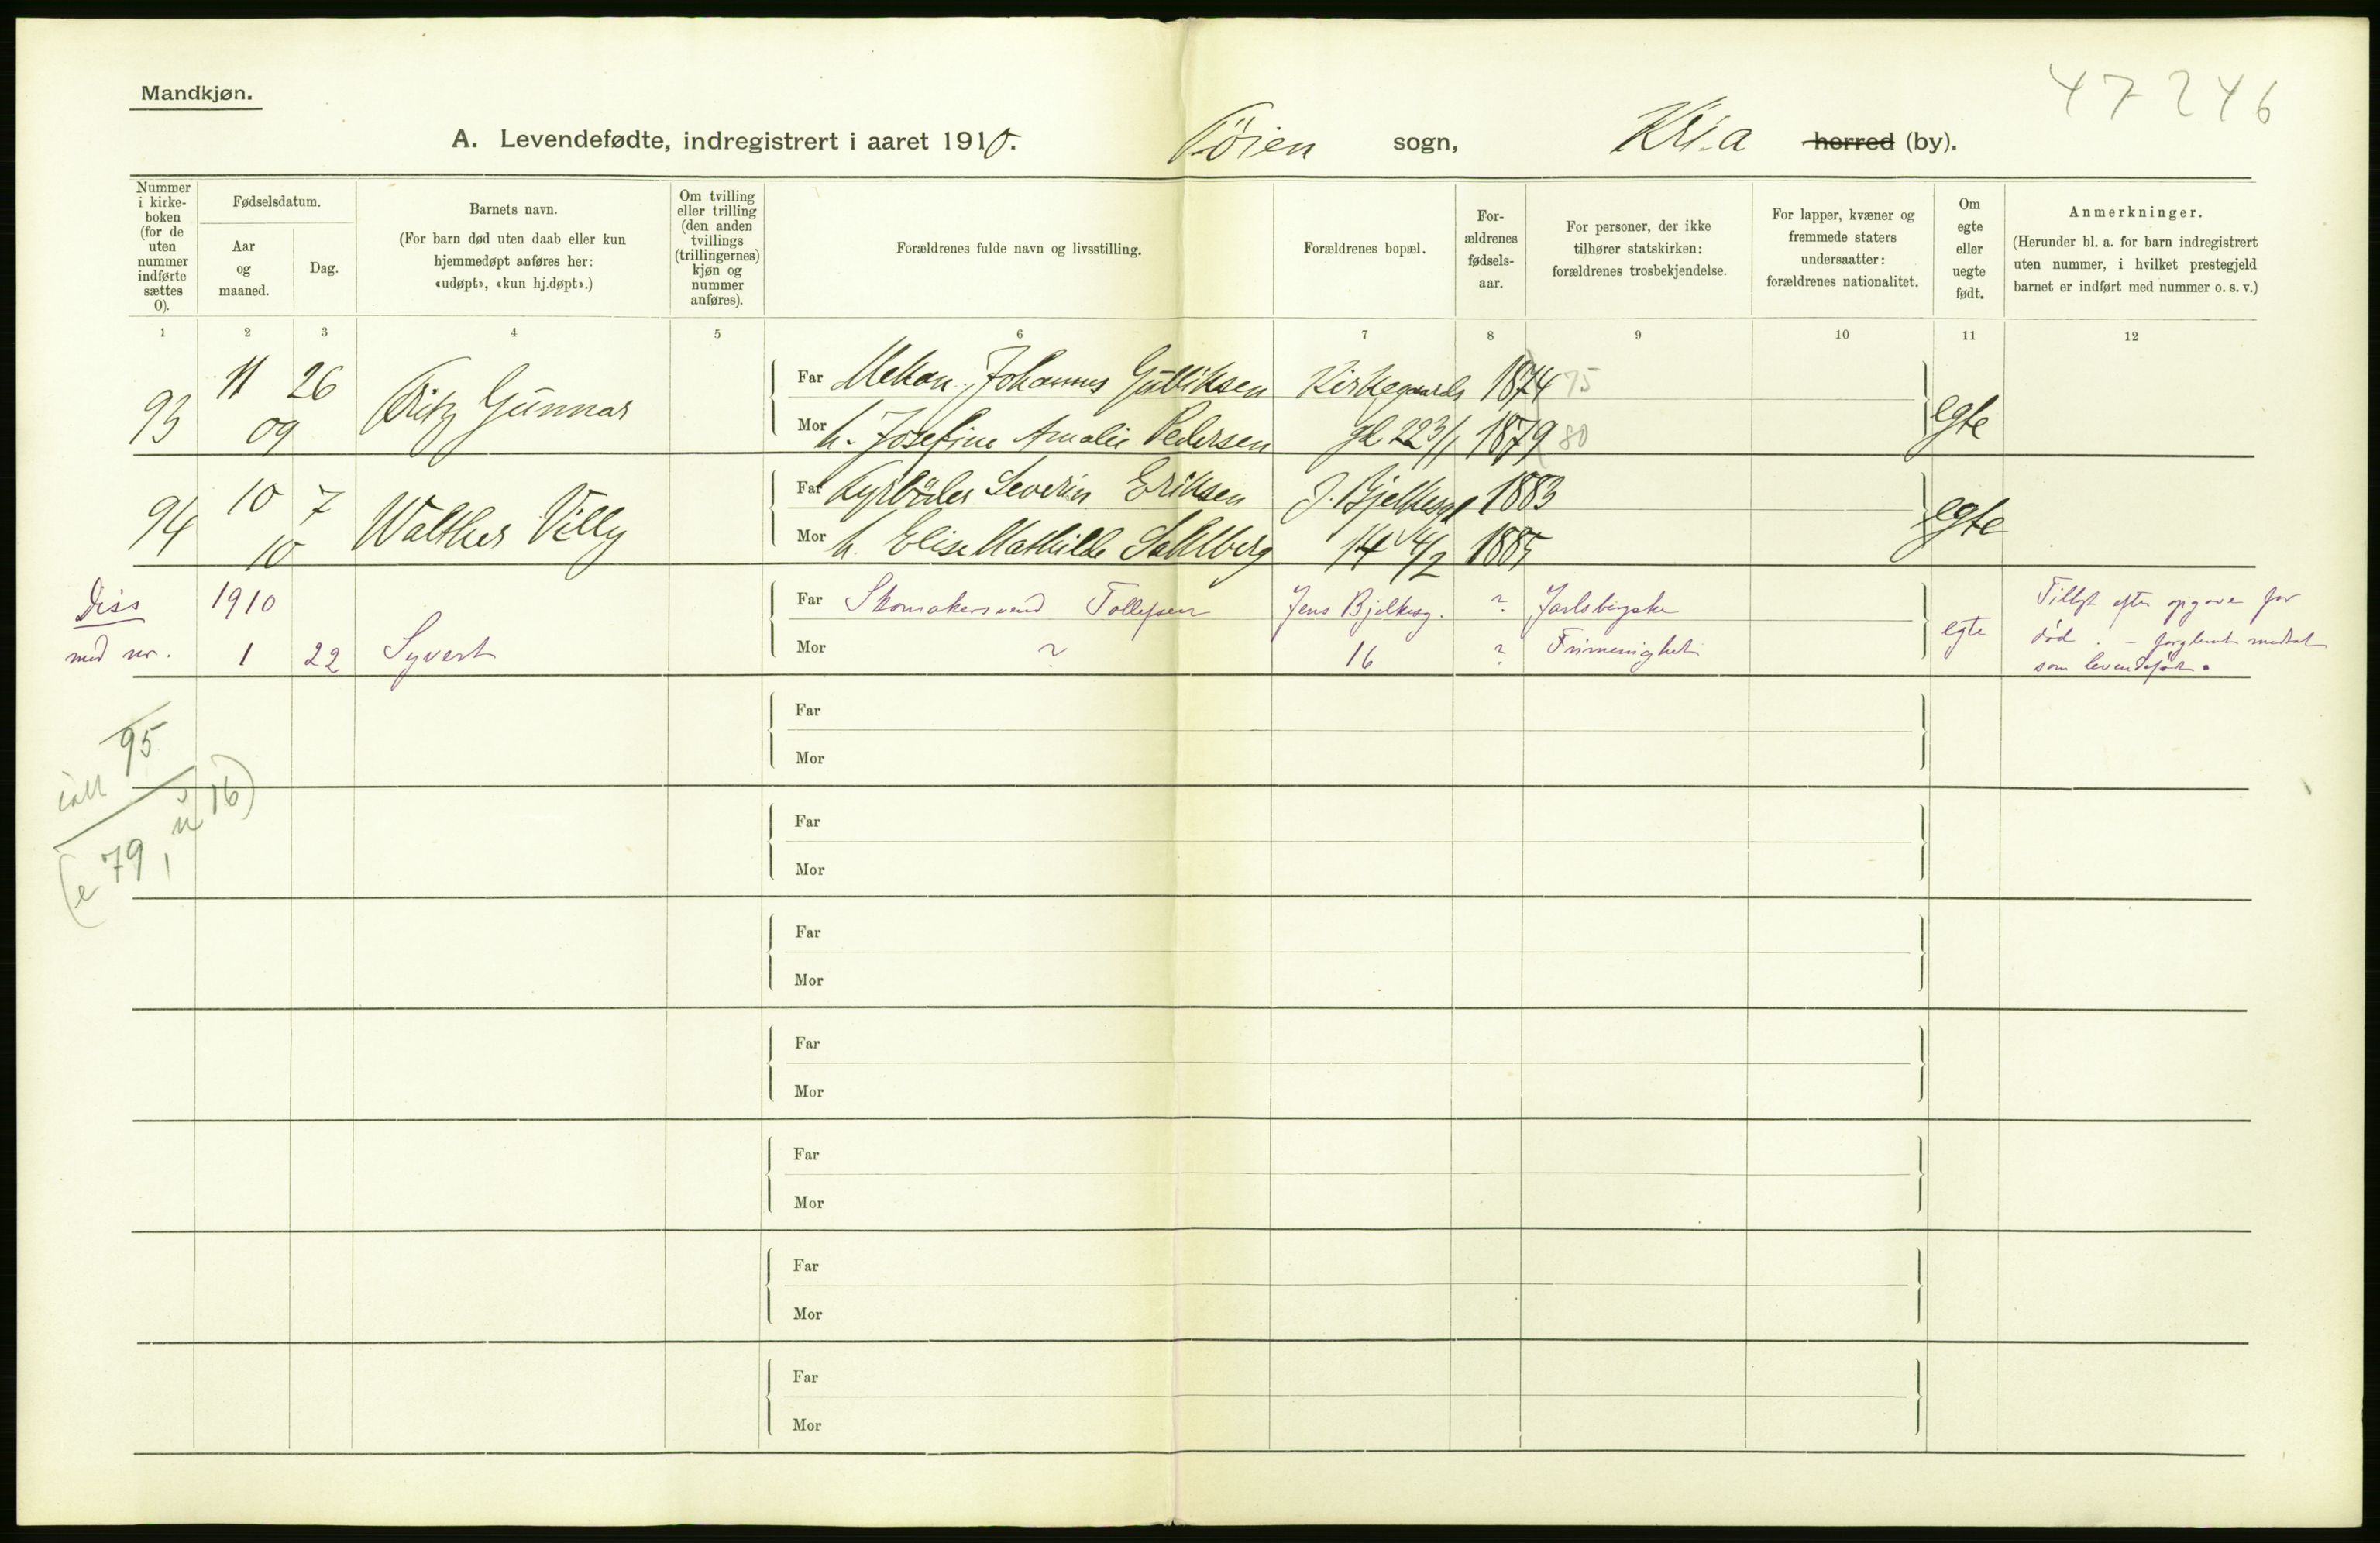 Mandkjøn.
47 246
A. Levendefødte, indregistrert i aaret 1910. Töien sogn, Kri.a herred (by).
Nummer i kirke-boken (for de uten nummer indførte sættes 0).
Fødselsdatum.
Aar og maaned.
Dag.
Barnets navn.
(For barn død uten daab eller kun hjemmedøpt anføres her: «udøpt», «kun hj.døpt».)
Om tvilling eller trilling (den anden tvillings (trillingernes) kjøn og nummer anføres).
Forældrenes fulde navn og livsstilling.
Forældrenes bopæl.
For-ældrenes fødsels-aar.
For personer, der ikke tilhører statskirken: forældrenes trosbekjendelse.
For lapper, kvæner og fremmede staters undersaatter: forældrenes nationalitet.
Om egte eller uegte født.
Anmerkninger.
(Herunder bl. a. for barn indregistrert uten nummer, i hvilket prestegjeld barnet er indført med nummer o. s. v.)
1 2 3 4 5 6 7 8 9 10 11 12
93 11 09 26 Fritz Gunnar
Far Mekan. Johannes Gulliksen Kirkegaards 1874 75
Mor h. Josefine Amalie Pedersen gd 22 3/1 1879 80
egte
94 10 10 7 Walther Villy
Far Kyrbøder Severin Eriksen J. Bjelkesgt 1883
Mor h. Elise Mathilde Sahlberg 14 4/2 1885
egte
Diss 1910
med nr. 1 22 Syvert
Far Skomakersvend Tollefsen Jens Bjelkesg. ? Jarlsbergske
Mor ? 16 ? Frimenighet
egte
Tillagt efter opgave for
død. - forglemt medtat
som levendefødt.
95
ialt
(e 79, u 16)
Far
Mor
Far
Mor
Far
Mor
Far
Mor
Far
Mor
Far
Mor
Far
Mor